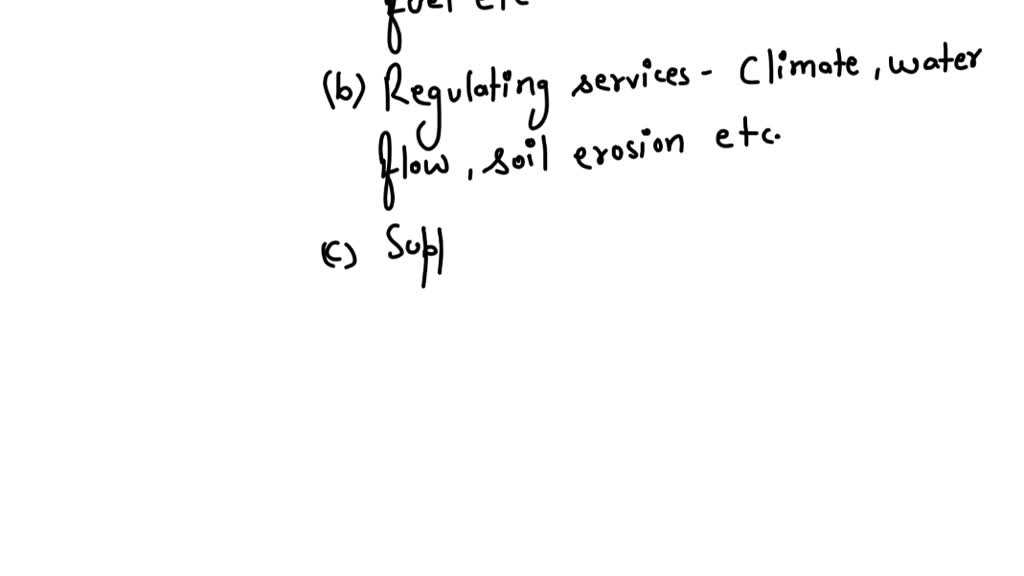 fuel etc
(b) Regulating services - Climate, water
flow, soil erosion etc.
(c) Supp